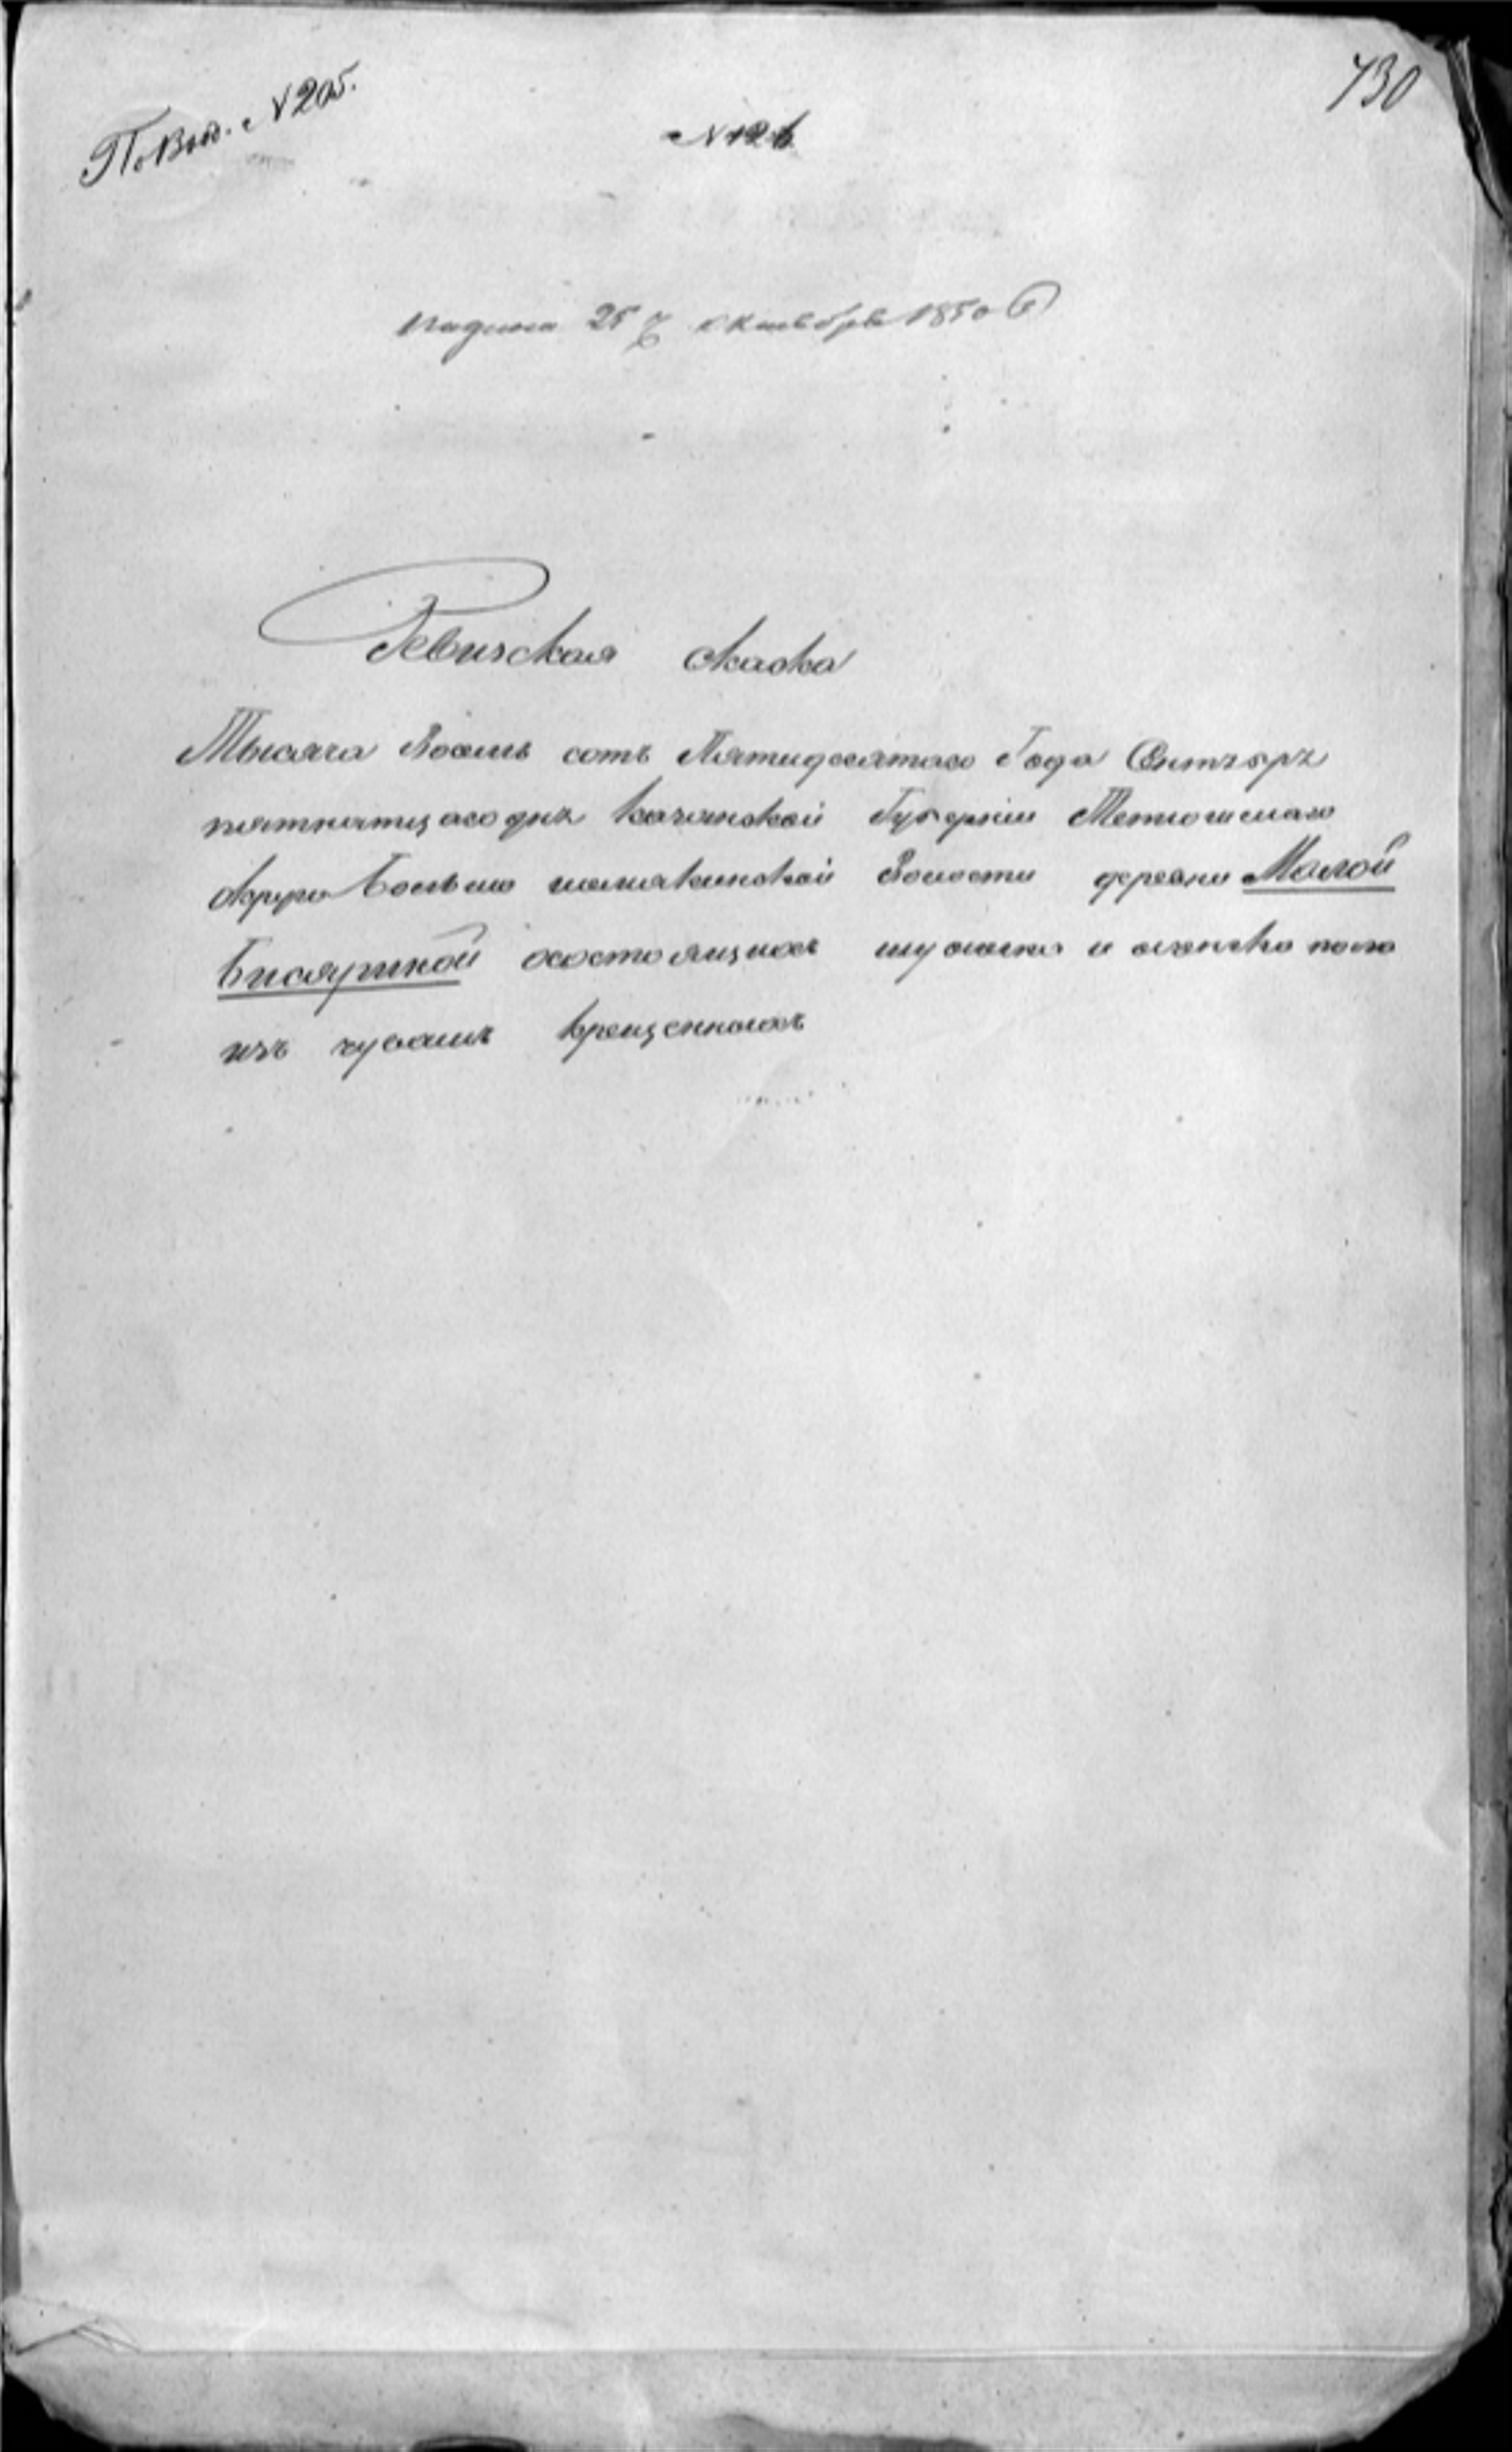 По Вѣд. N 205.
730
N 126
Подана 25 октября 1850 г
Ревизская скаска
Тысяча восемь сотъ Пятидесятаго Года Сентября
пятнатцаго дня Казанской Губерніи Тетюшскаго
округа Больше шемякинской волости деревни Малой
Бисяриной осостоящихъ мужска и женска пола
изъ чувашъ крещенныхъ